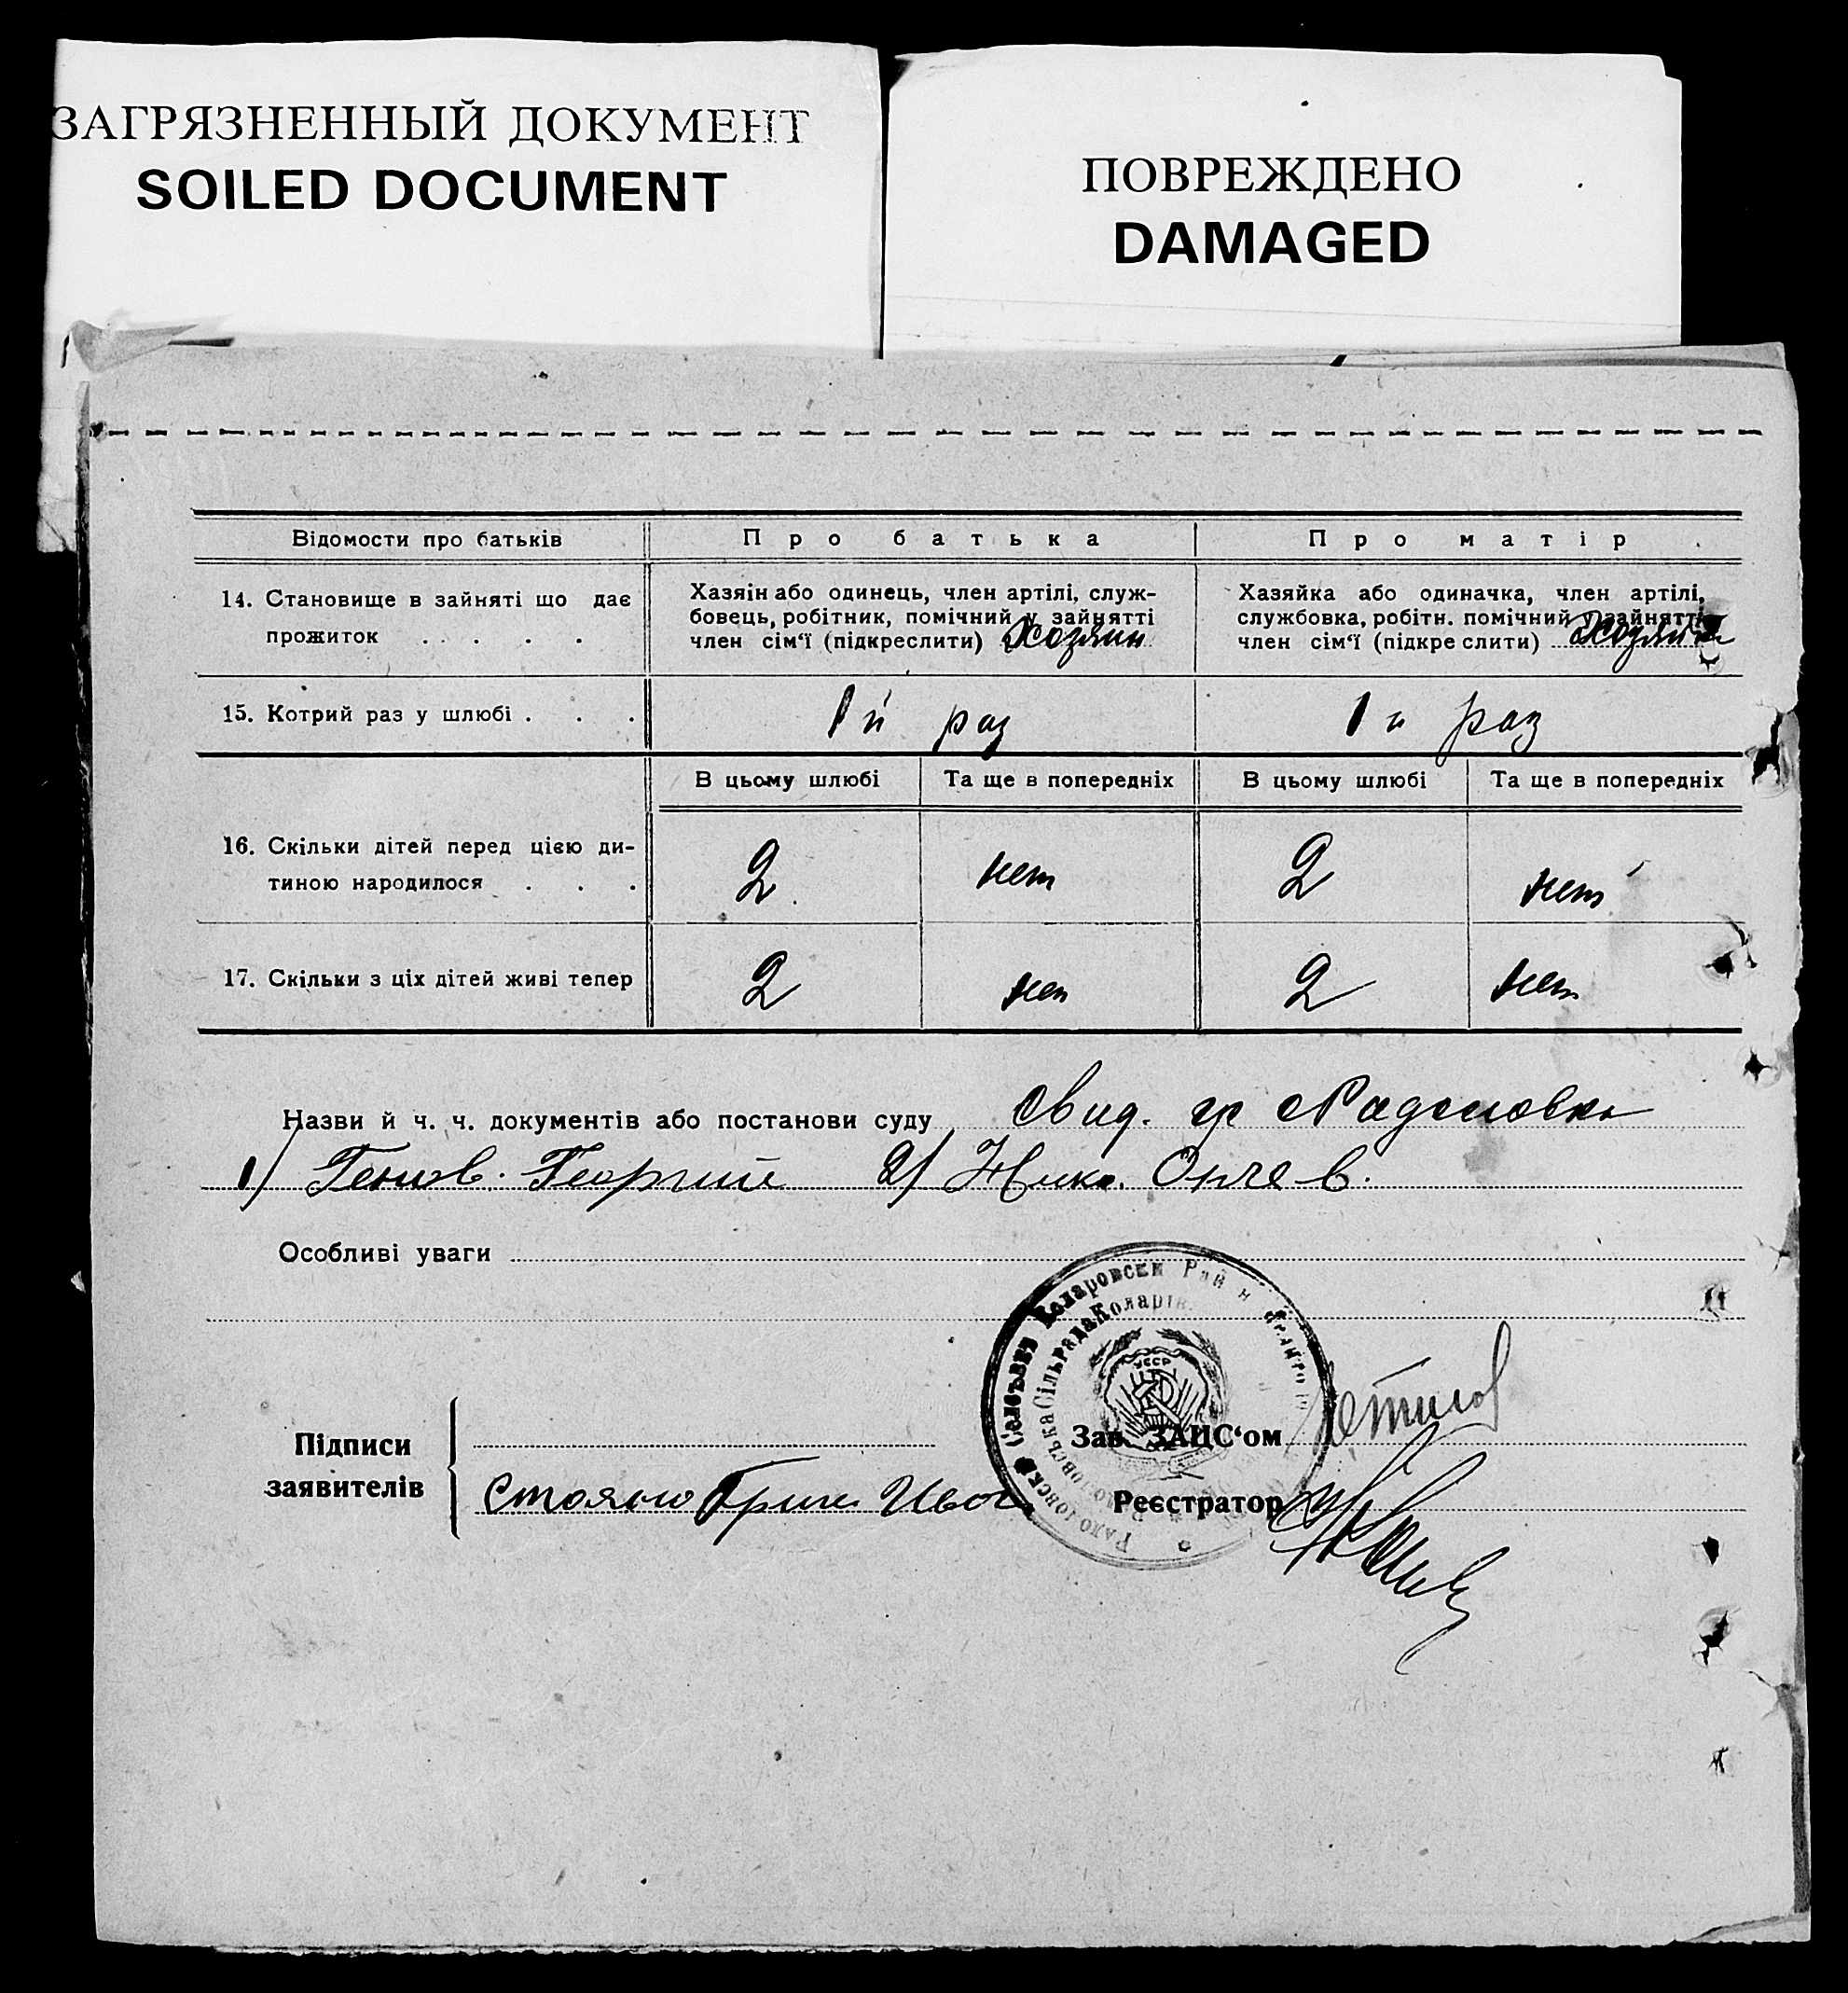 ЗАГРЯЗНЕННЫЙ ДОКУМЕНТ
SOILED DOCUMENT
ПОВРЕЖДЕНО
DAMAGED
Відомости про батьків
Про батька
Про матір
14. Становище в зайняті що дає
прожиток . . . .
Хазяін або одинець, член артілі, служ-
бовець, робітник, помічний у зайнятті
член сім‘ї (підкреслити) Хозяин
Хазяйка або одиначка, член артілі,
службовка, робітн. помічний у зайнятті
член сім‘ї (підкреслити)
15. Котрий раз у шлюбі . . .
1й раз
1й раз
В цьому шлюбі
Та ще в попередніх
В цьому шлюбі
Та ще в попередніх
16. Скільки дітей перед цією ди-
тиною народилося . . .
2
нет
2
нет
17. Скільки з ціх дітей живі тепер
2
нет
2
нет
Назви й ч. ч. документів або постанови суду Свид. гр
1/ Генов. Георгий 2/ Онче в.
Особливі уваги
Коларовски
Сільрада Коларів
УССР
Підписи
заявителів
Зав. ЗАЦС‘ом
Реєстратор